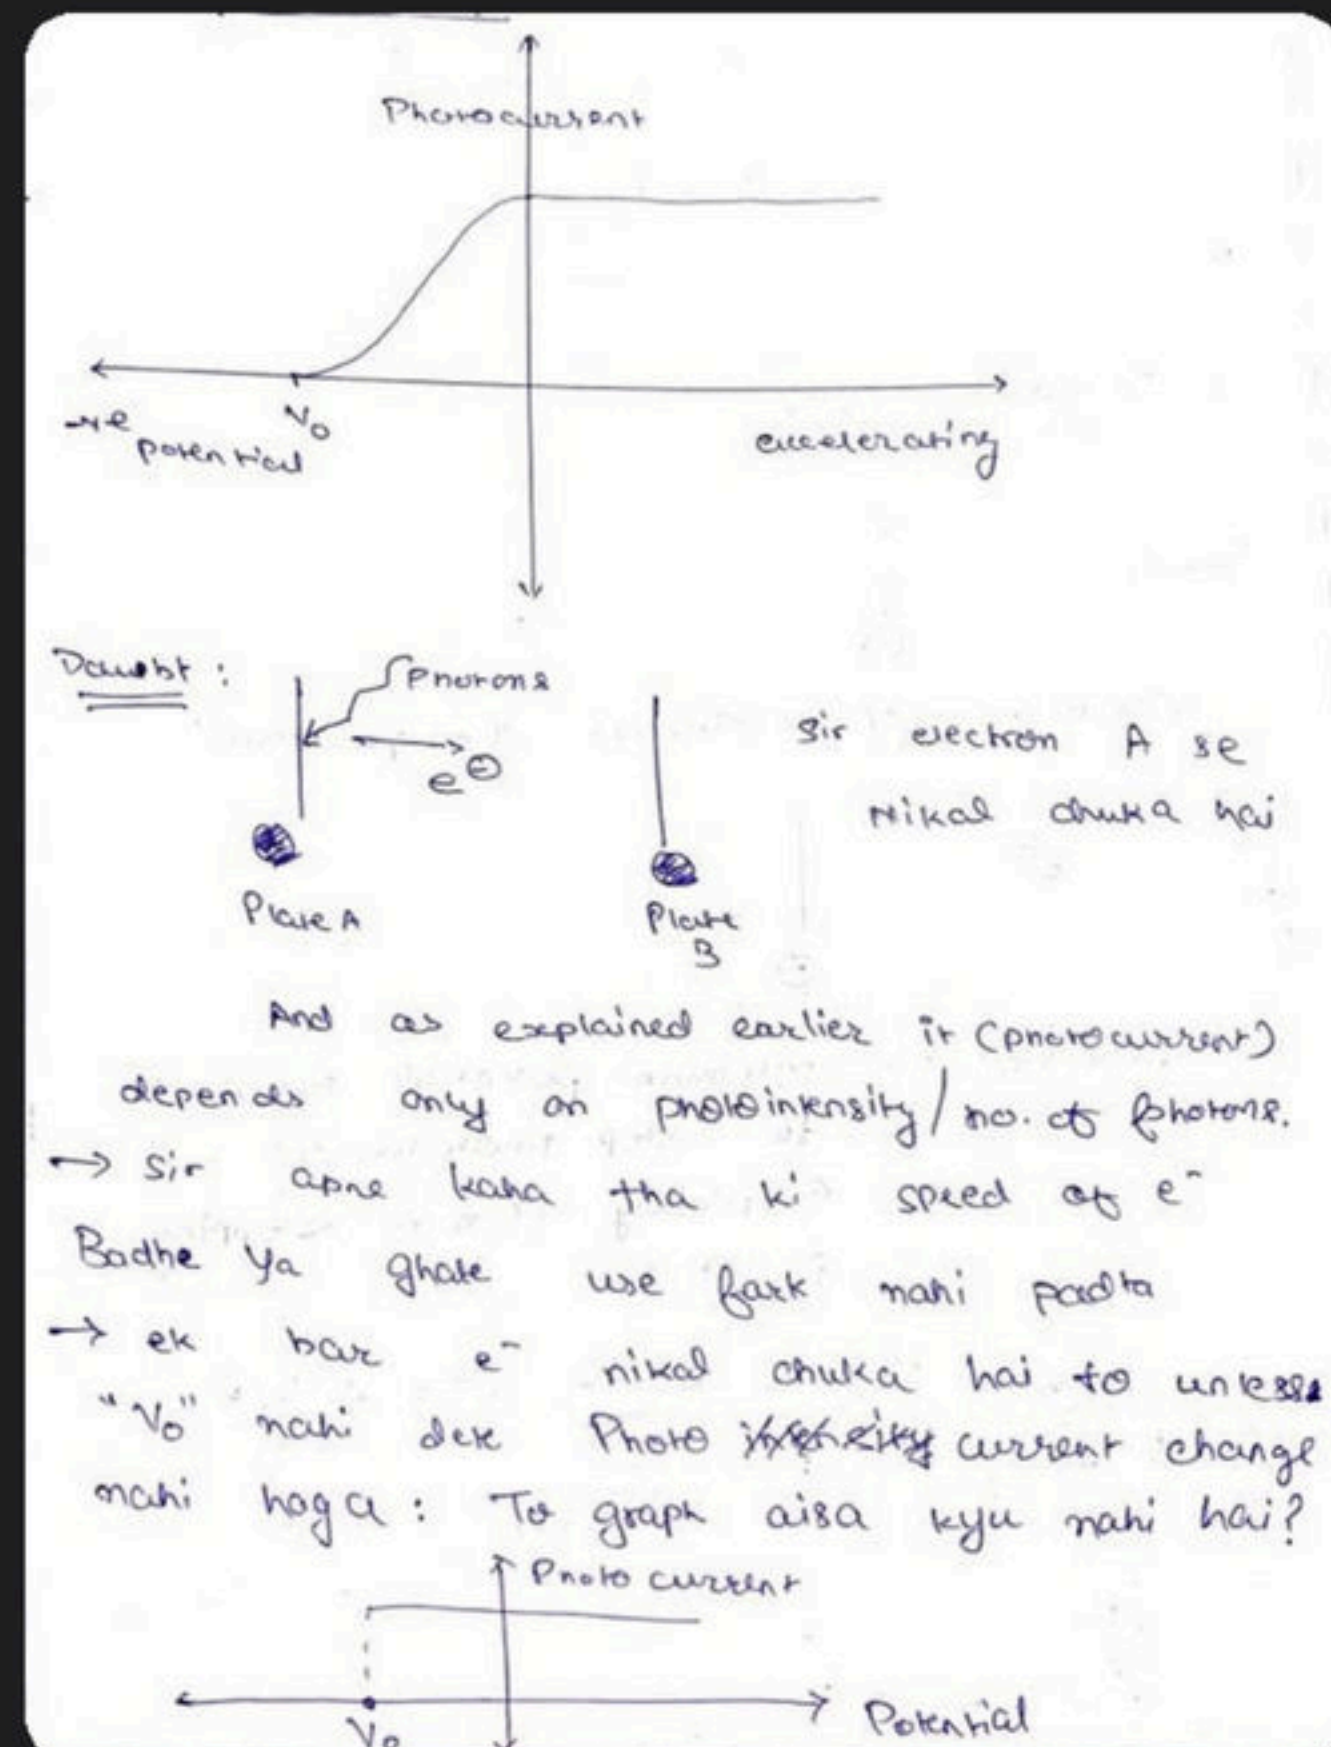 Photocurrent
-ve potential
V₀
accelerating
Doubt :
photons
e⊖
Plate A
Plate B
Sir electron A se
nikal chuka hai
And as explained earlier it (photocurrent)
depends only on photointensity / no. of photons.
→ Sir apne kaha tha ki speed of e⁻
Badhe ya ghate use fark nahi padta
→ ek bar e⁻ nikal chuka hai to unless
"V₀" nahi dete Photo current change
nahi hoga : To graph aisa kyu nahi hai?
Photo current
V₀
Potential